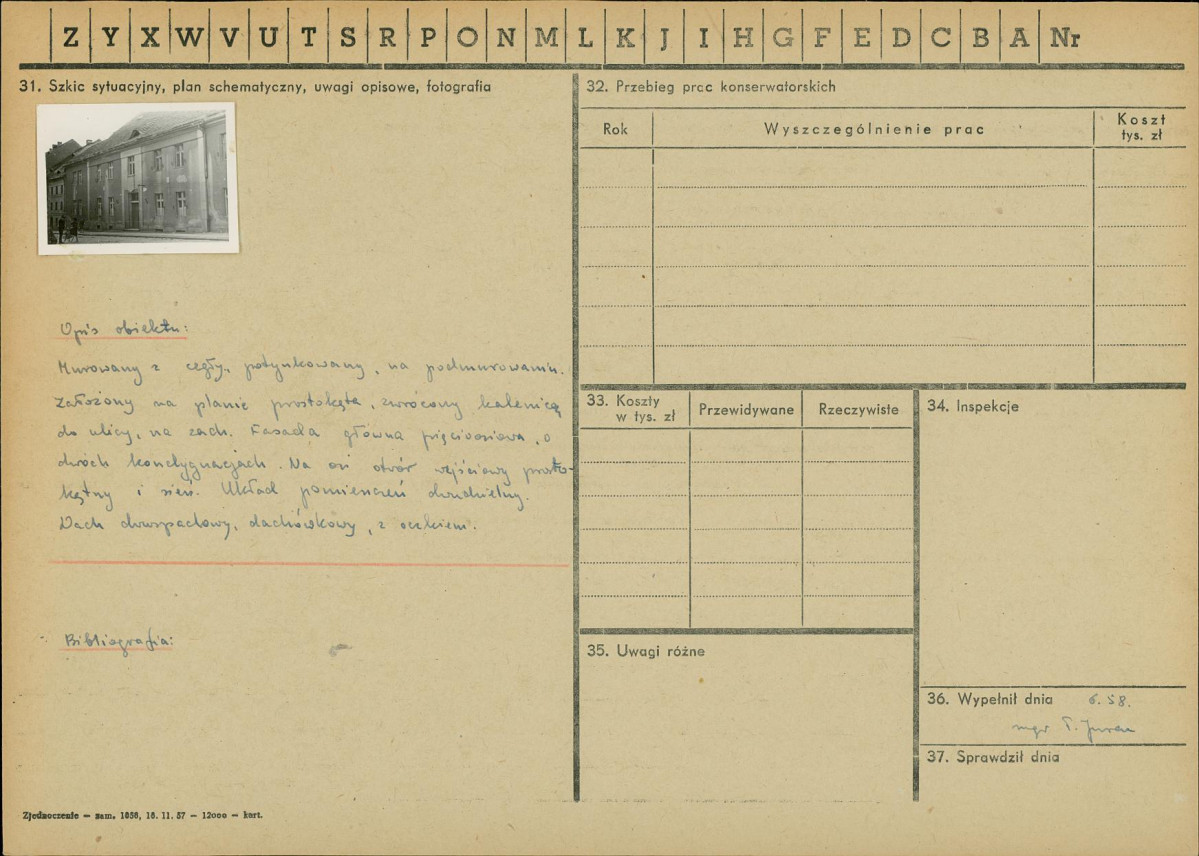 Z Y X W V U T S R P O N M L K J I H G F E D C B A Nr
31. Szkic sytuacyjny, plan schematyczny, uwagi opisowe, fotografia
Opis obiektu:
Murowany z cegły, potynkowany, na podmurowaniu.
Założony na planie prostokąta, zwrócony kalenicą
do ulicy, na zach. Fasada główna pięcioosiowa, o
dwóch kondygnacjach. Na osi otwór wejściowy prosto-
kątny i sień. Układ pomieszczeń dwudzielny.
Dach dwuspadowy, dachówkowy, z oczkiem.
Bibliografia:
Zjednoczenie — zam. 1056, 16. 11. 57 — 12000 — kart.
32. Przebieg prac konserwatorskich
Rok Wyszczególnienie prac Koszt
tys. zł
33. Koszty
w tys. zł Przewidywane Rzeczywiste
34. Inspekcje
35. Uwagi różne
36. Wypełnił dnia 6. 58.
mgr T.
37. Sprawdził dnia